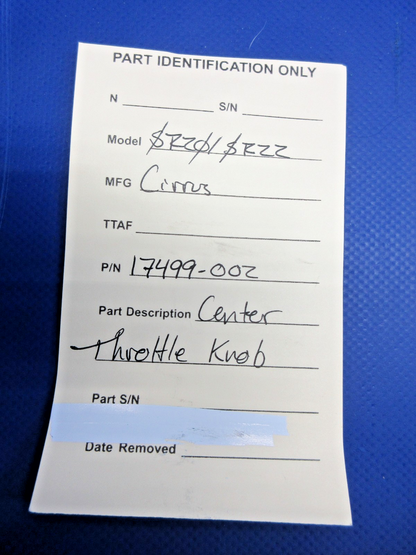 PART IDENTIFICATION ONLY
N ____________ S/N ____________
Model SR20/SR22
MFG Cirrus
TTAF
P/N 17499-002
Part Description Center
Throttle Knob
Part S/N
Date Removed